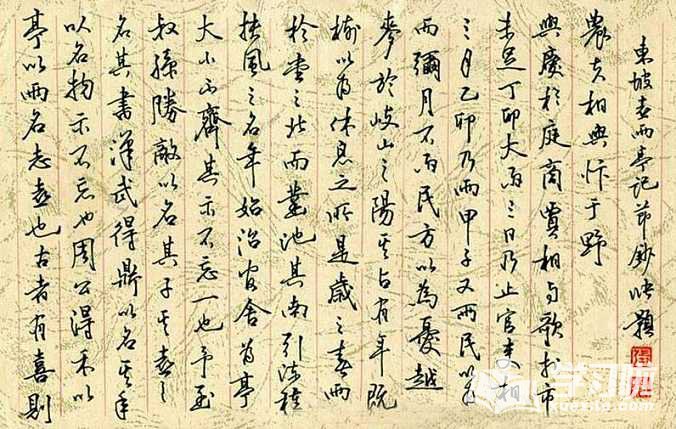 亭以雨名志喜也古者有喜則
以名物示不忘也周公得禾以
名其書漢武得鼎以名其年
叔孫勝敵以名其子其喜之
大小不齊其示不忘一也予至
扶風之名年始治官舍為亭
於堂之北而鑿池其南引流種
樹以為休息之所是歲之春雨
麥於岐山之陽其占有年既
而彌月不雨民方以為憂越
三月乙卯乃雨甲子又雨民以為
未足丁卯大雨三日乃止官吏相
與慶於庭商賈相與歌於市
農夫相與忭于野
東坡喜雨亭記節鈔 題
学习啦
xuexila.com